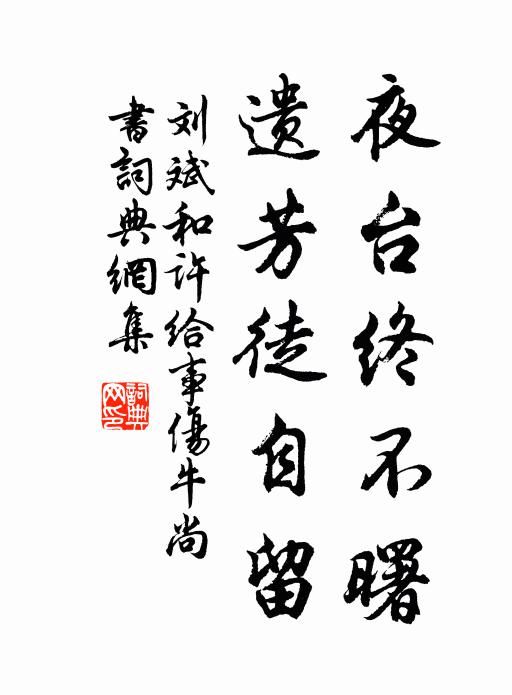 夜台终不曙
遗芳徒自留
刘斌和许给事傷牛尚
書詞典網集
詞典网印